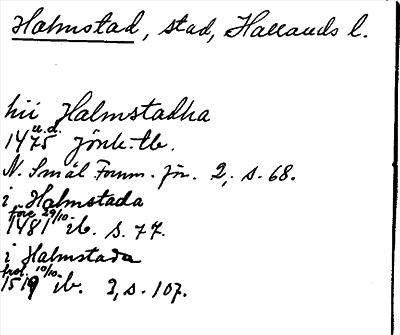 Halmstad, stad, Hallands l.
hii Halmstadha
u.d.
1475 Jönk. tb.
N. Smål. Fornm. för. 2, s. 68.
i Halmstada
före 29/10
1481 ib. s. 77.
i Halmstada
10/10
1519 ib. 3, s. 107.